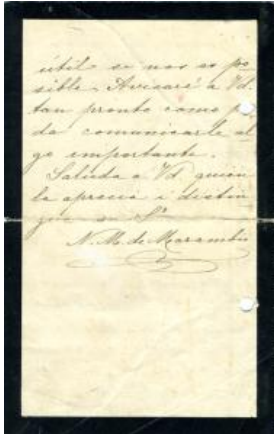 útil si nos es po
sible. Avisaré a Vd.
tan pronto como pu
da comunicarle al
go importante.
Saluda a Vd. quien
la aprecia i distin
gue su
N. M. de Marambio